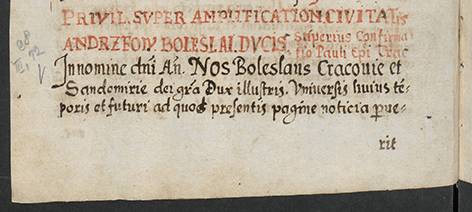 PRIVIL. SUPER AMPLIFICATION. CIVITATIS
ANDRZEOW. BOLESLAI. DVCIS. Superius Confirma
tio Pauli Epi Crac
In nomine dni Am. NOS Boleslaus Cracouie et
Sandomirie dei gra Dux illustris. Vniuersis huius té-
poris et futuri ad quos presentis pagine noticia pue-
rit